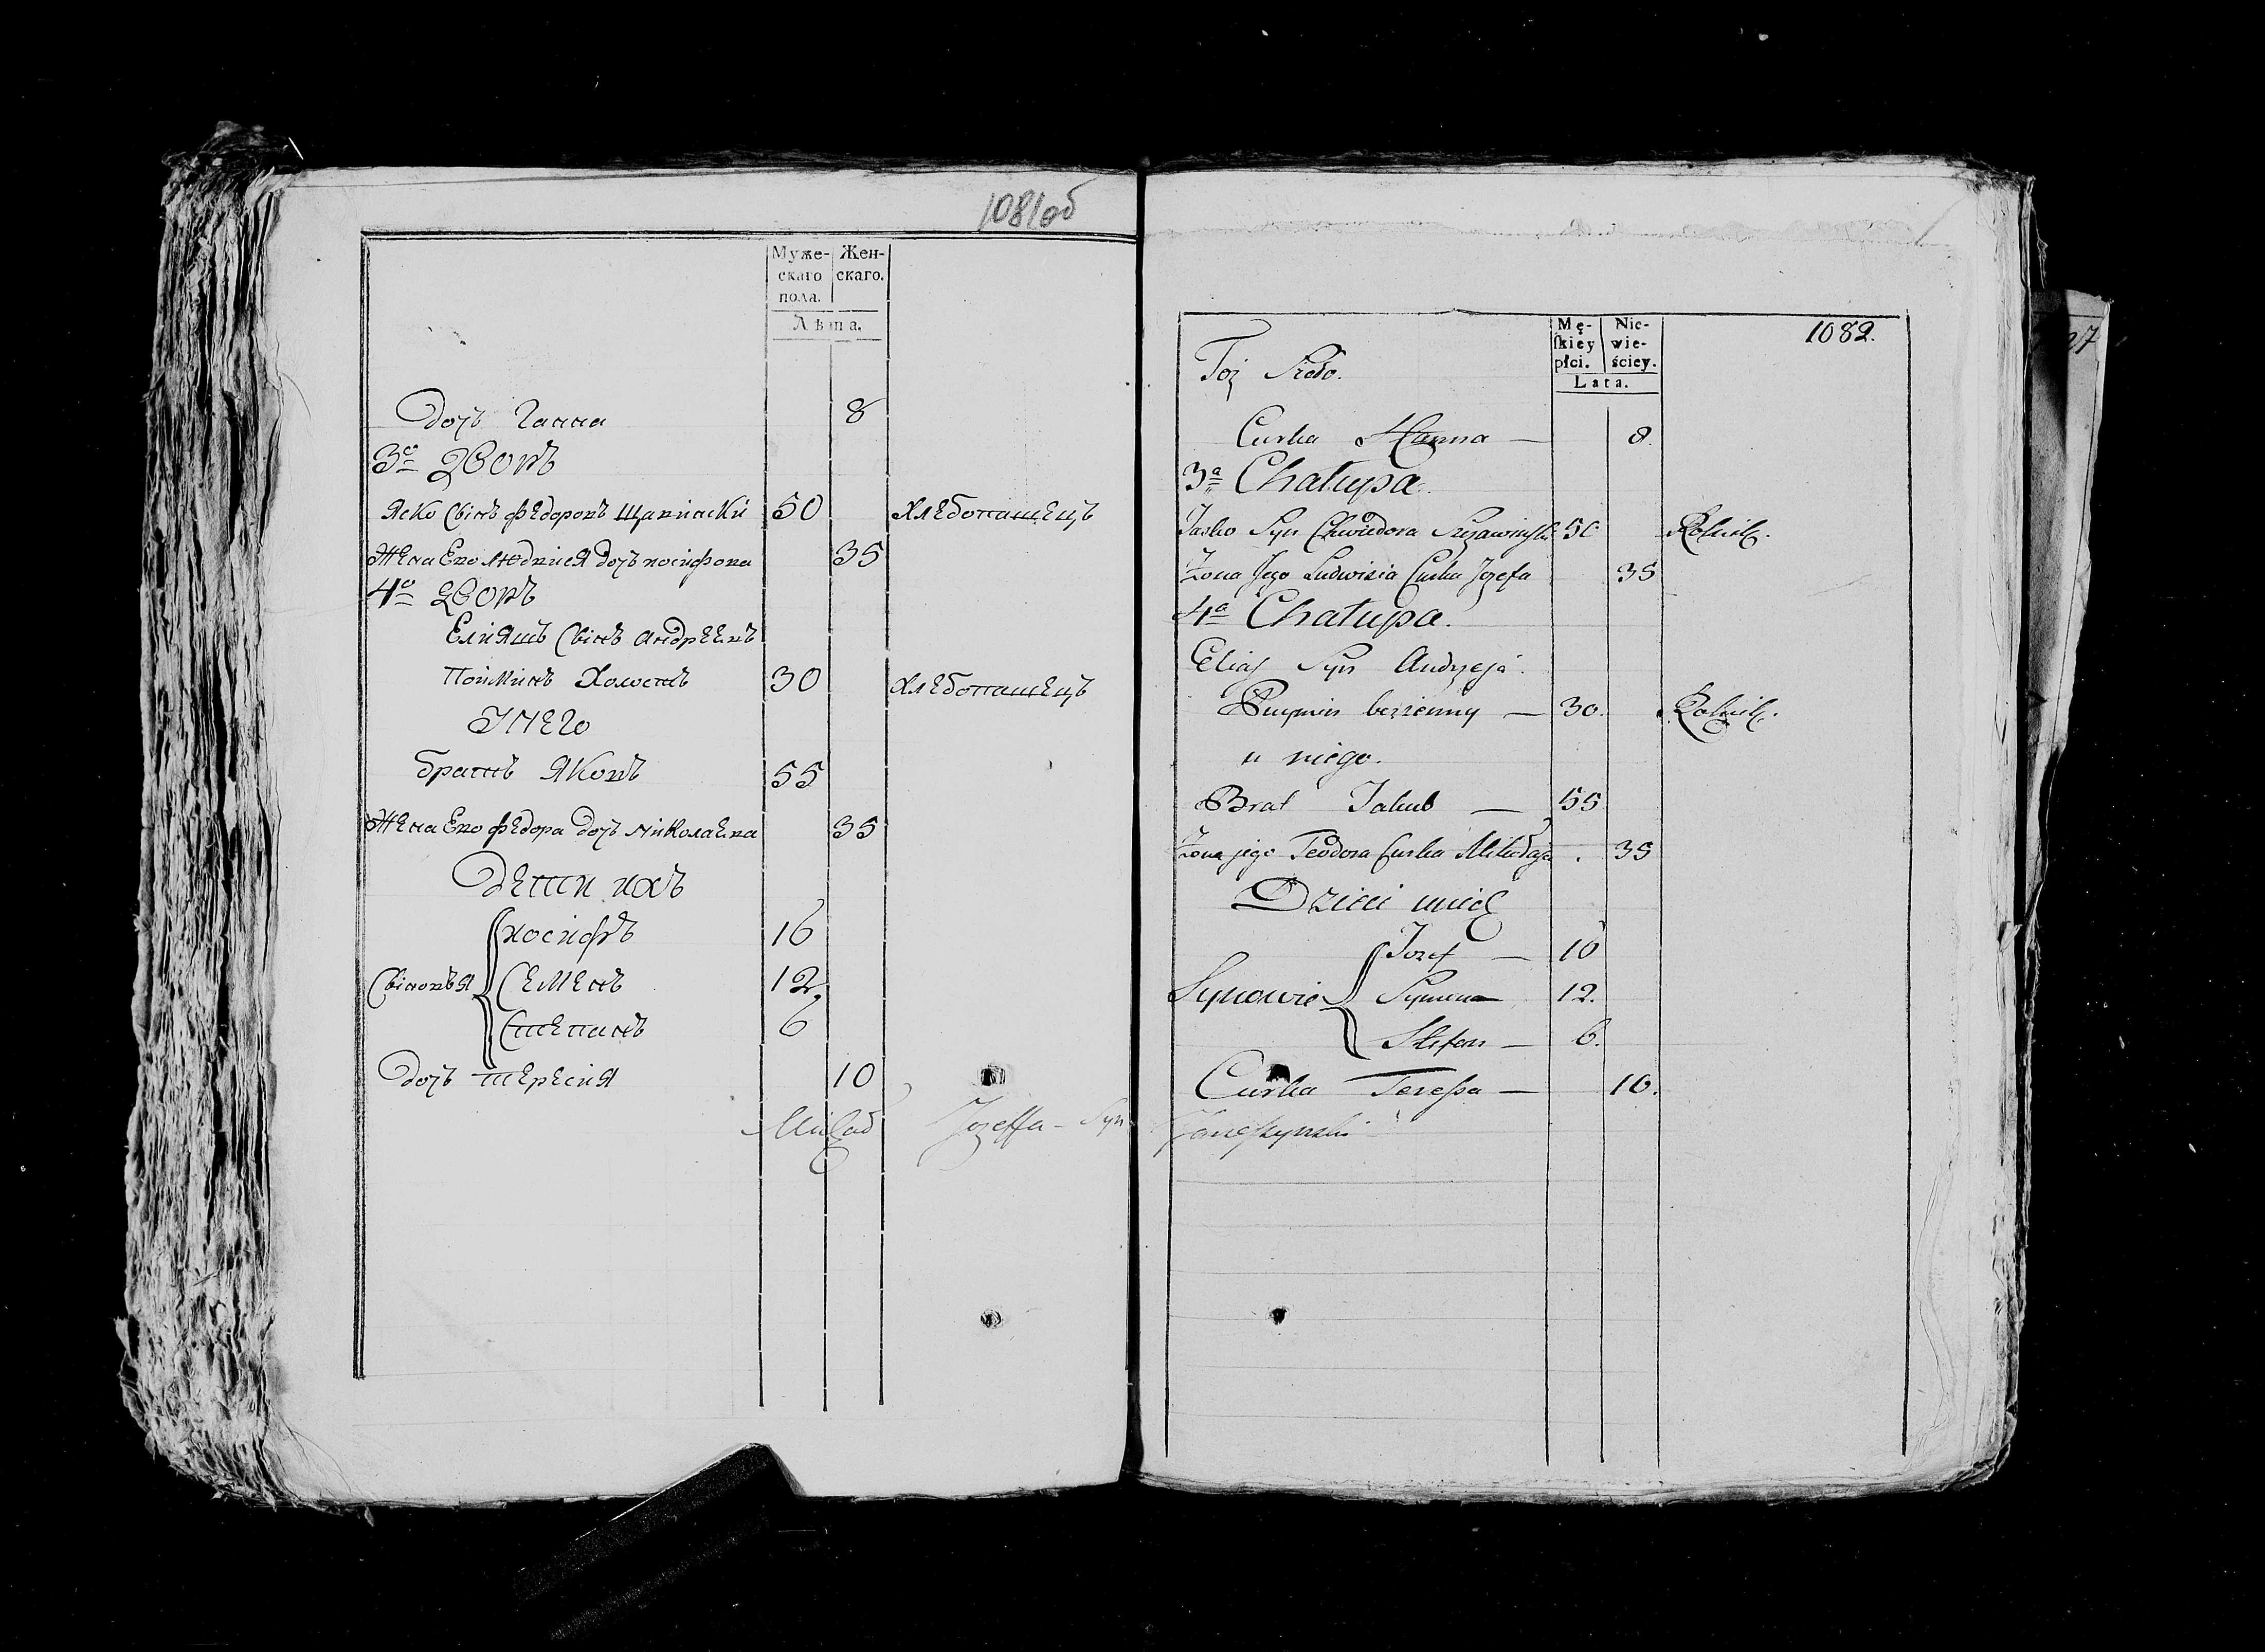 1081об
Муже-
скаго
пола.
Жен-
скаго.
Лѣта.
Дочъ Ганна 8
3й Дворъ
Яско Сынъ Федоровъ 50 Хлебопашецъ
Жена Ево Людвися дочъ иосифова 35
4й Дворъ
Елияшъ Сынъ андреевъ
Холостъ 30 Хлебопашецъ
У Него
братъ Яковъ 55
Жена Ево федора дочъ николаева 35
Дети ихъ
Сыновья
иосифъ 16
Семенъ 12
Степанъ 6
Дочъ тересия 10
Jozeffa - Syn
1082.
Mę-
ſkiey
płci.
Nie-
wie-
ściey.
Lata.
Toż
Curka Hanna — 8.
3a Chałupa.
Jasko Syn Chwiedora 50 Rolnik.
Żona Jego Ludwisia Curka Jozefa 35
4a Chałupa.
Eliasz Syn Andrzeja
bezżenny — 30. Rolnik.
u niego.
Brat Jakub — 55
Żona jego Teodora Curka Mikołaja 35
Dzieci
Synowie
Jozef — 16
Symon 12.
Stefan — 6.
Curka Teressa — 10.